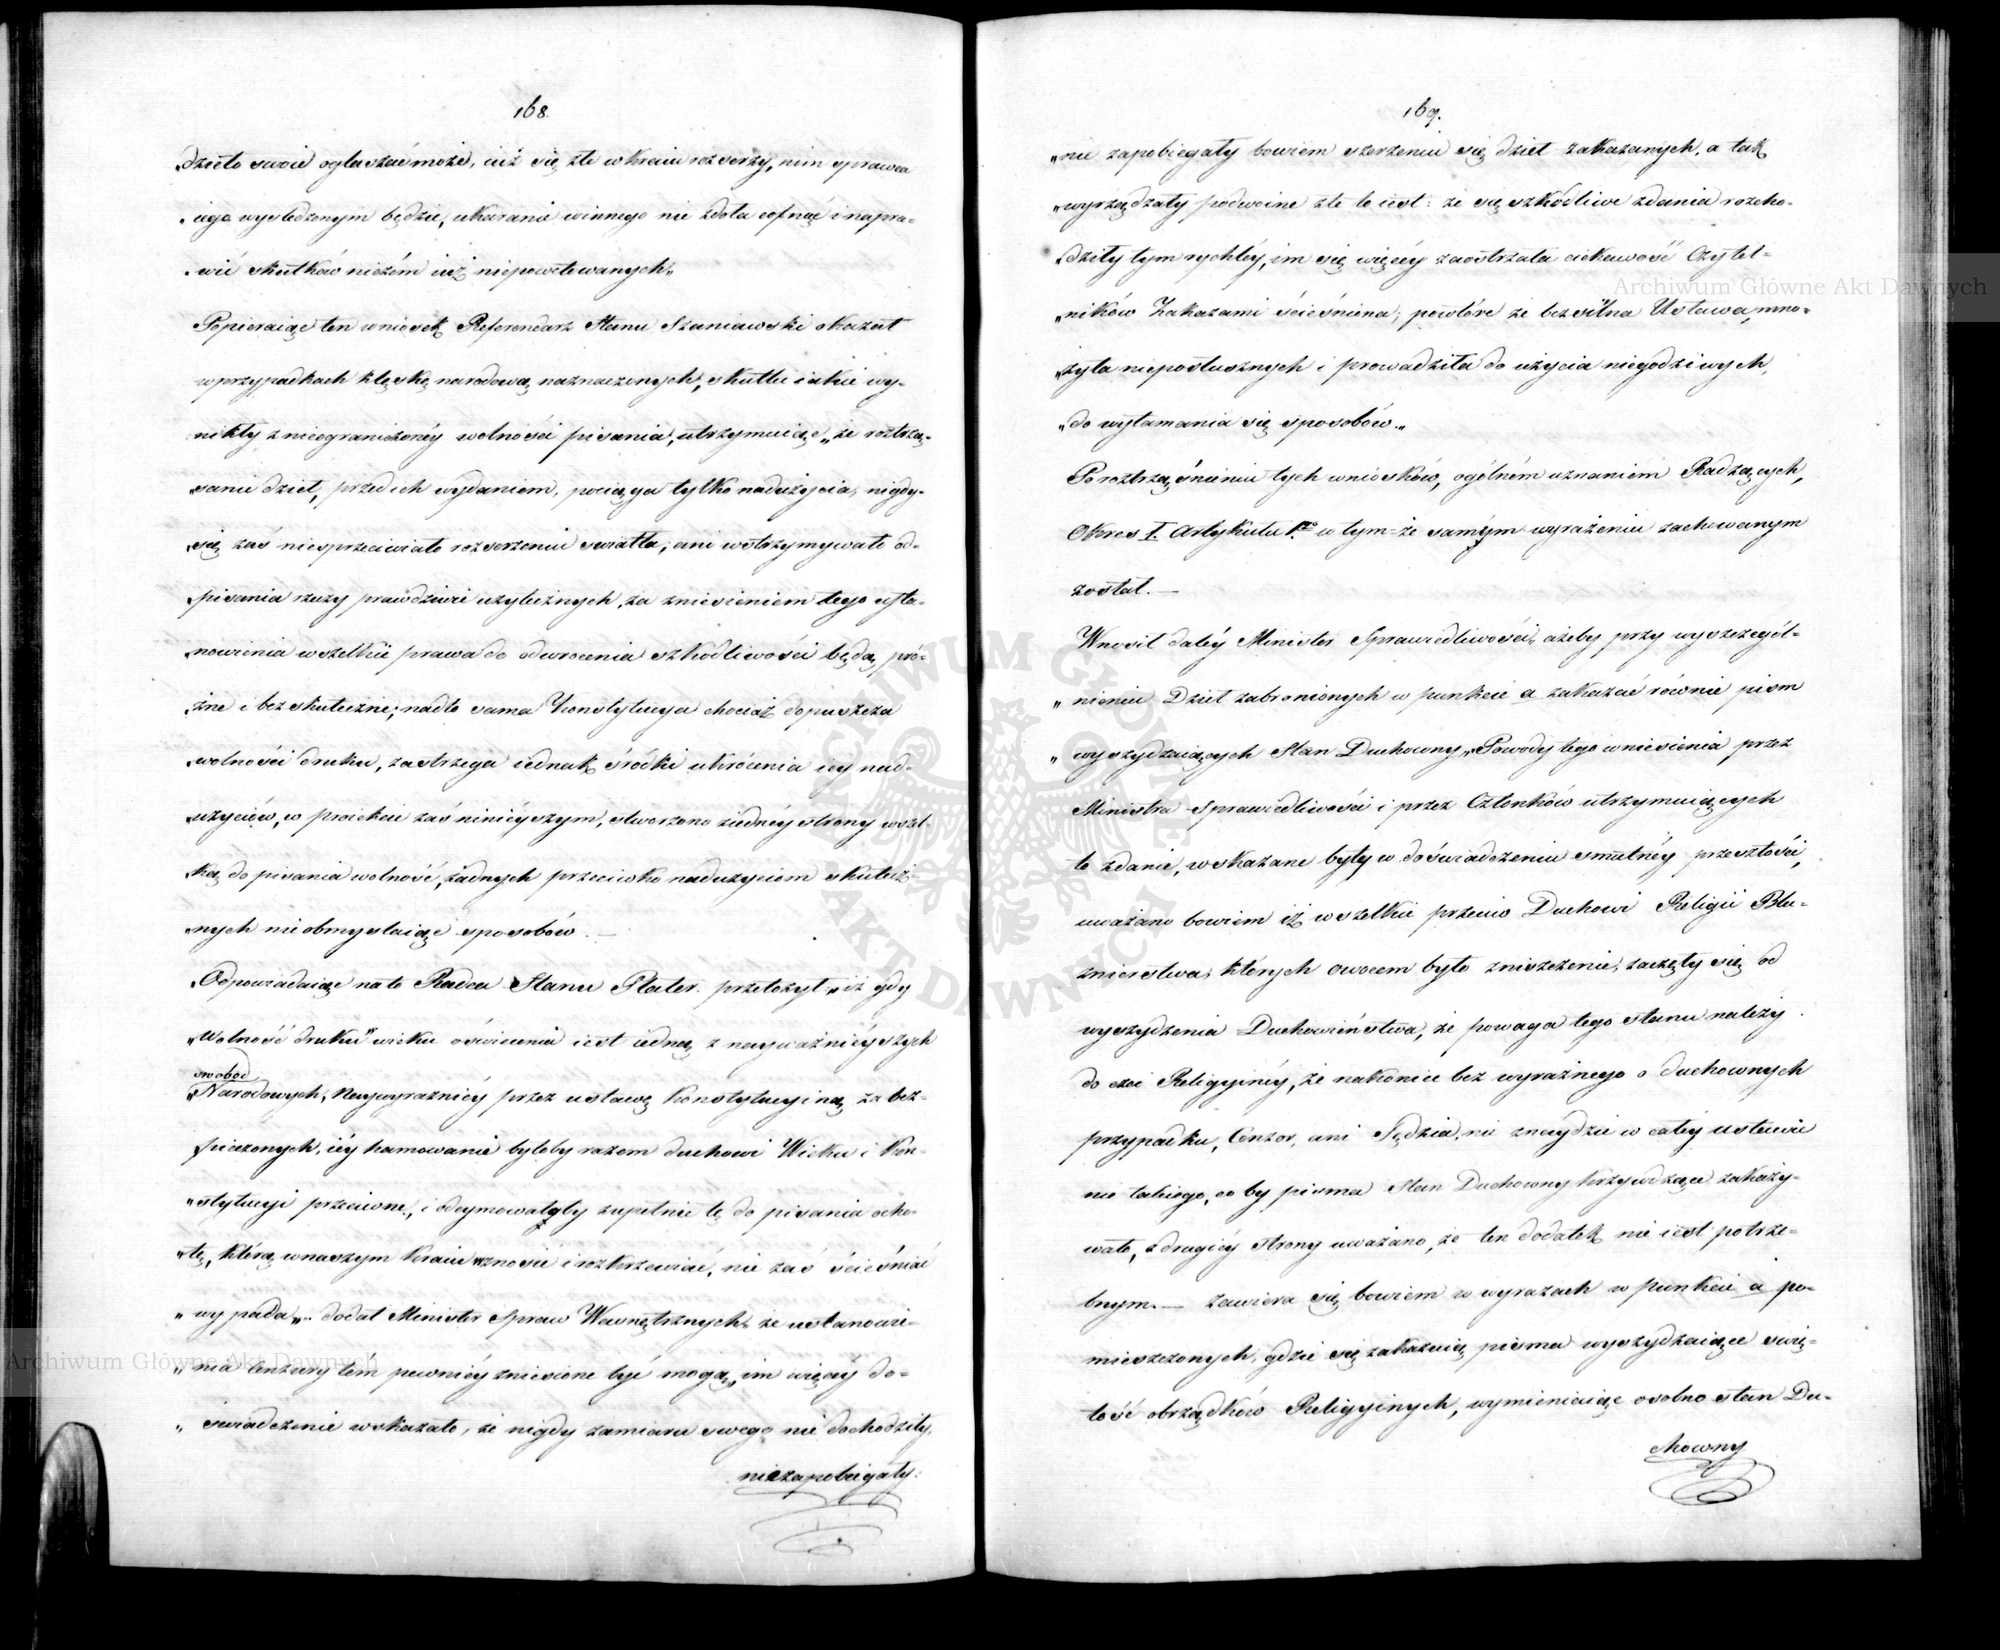 168.
„dzieło swoie ogłaszać może, iuż się złe w kraiu rozszerzy, nim sprawca
„iego wyśledzonym będzie, ukaranie winnego nie zdoła cofnąć i napra-
„wić skutków niczém iuż niepowetowanych„
Popieraiąc ten wniosek Referendarz Stanu Szaniawski okazał
w przypadkach klęską narodową naznaczonych, skutki iakie wy-
nikły z nieograniczonéy wolności pisania, utrzymuiąc „że roztrzą-
„sanie dzieł, przed ich wydaniem, pociąga tylko nadużycia, nigdy
„się zaś niesprzeciwiało rozszerzeniu światła; ani wstrzymywało od
„pisania rzeczy prawdziwie użytecznych, za zniesieniem tego usta-
„nowienia wszelkie prawa do odwrócenia szkodliwości będą pró-
„żne i bezskuteczne; nadto sama Konstytucya chociaż dopuszcza
„wolności druku, zastrzega iednak środki ukrócenia iey nad-
„użyciów, w proiekcie zaś ninieyszym, otworzono ziednéy strony wszel-
„ką do pisania wolność, żadnych przeciwko nadużyciom skutecz-
„nych nie obmyslaiąc sposobów. —
Odpowiadaiąc na to Radca Stanu Plater przełożył „iż gdy
„Wolność druku w wieku oświecenia iest iedną z nayważniéyszych
swobod
„Narodowych, Naywyraźniéy przez ustawę konstytucyiną zabez-
pieczonych, iéy hamowanie byłoby razem duchowi Wieku i Kon-
„stytucyi przeciwne, i odeymowałyby zupełnie tę do pisania ocho-
„tę, którą w naszym kraiu wznosić i rozkrzewiać, nie zaś ścieśniać
„wypada„. dodał Minister Spraw Wewnętrznych „że ustanowie-
„nia Cenzury tém pewniéy zniesione być mogą, im więcéy do-
„świadczenie wskazało, że nigdy zamiaru swego nie dochodziły,
nie zapobiegały:
169.
„nie zapobiegały bowiem szerzeniu się dzieł zakazanych, a tak
„wyrządzały podwoine złe to iest: że się szkodliwe zdania rozcho-
„dziły tym rychléy, im się więcéy zaostrzała ciekawość Czytel-
„ników Zakazami ścieśniona; powtóre że bezsilna Ustawa, mno-
„żyła nieposłusznych i prowadziła do użycia niegodziwych,
„do wyłamania się sposobów.„
Po roztrząśnieniu tych wniosków, ogólném uznaniem Radzących,
Okres I. Artykułu 1go w tym-że samym wyrażeniu zachowanym
został. —
Wnosił daléy Minister Sprawiedliwości, ażeby przy wyszczegól-
„nieniu Dzieł zabronionych w punkcie a zakazać równie pism
„wyszydzaiących Stan Duchowny„ Powody tego wniesienia przez
Ministra Sprawiedliwości i przez Członków utrzymuiących
to zdanie, wskazane były w doświadczeniu smutnéy przeszłości,
uważano bowiem iż wszelkie przeciw Duchowi Religii Blu-
znierstwa, których owocem było zniszczenie, zaczęły się od
wyszydzenia Duchowieństwa, że powaga tego stanu należy
do czci Religyinéy, że nakoniec bez wyraźnego o duchownych
przypadku, Cenzor, ani Sędzia, nie znaydzie w całéy ustawie
nic takiego, coby pisma Stan Duchowny krzywdzące zakazy-
wało, z drugiéy strony uważano, że ten dodatek nie iest potrze-
bnym. — Zawiera się bowiem w wyrazach w punkcie a po-
mieszczonych, gdzie się zakazuią pisma wyszydzaiące świę-
tość obrządków Religyinych, wymieniaiąc osobno stan Du-
chowny
Archiwum Główne Akt Dawnych
Archiwum Główne Akt Dawnych
ARCHIWUM GŁÓWNE AKT DAWNYCH